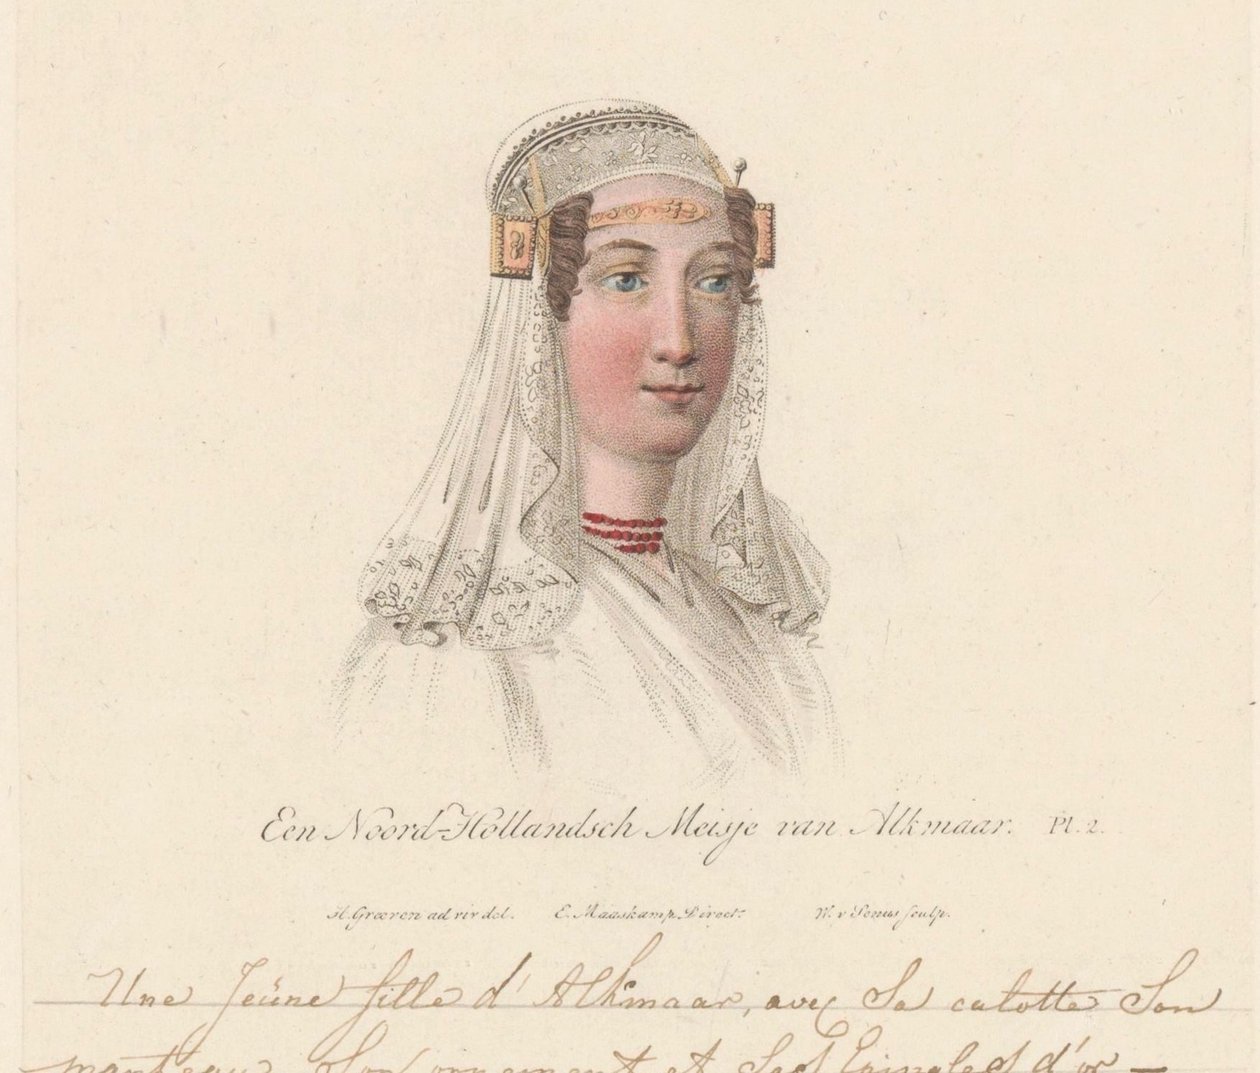 Een Noord-Hollandsch Meisje van Alkmaar. Pl. 2.
H. Greeven ad viv del. E. Maaskamp Direct. W. v Senus sculp.
Une Jeüne fille d'Alkmaar, avec Sa calotte Son
manteau, Son ornement et Ses Epingles d'or —